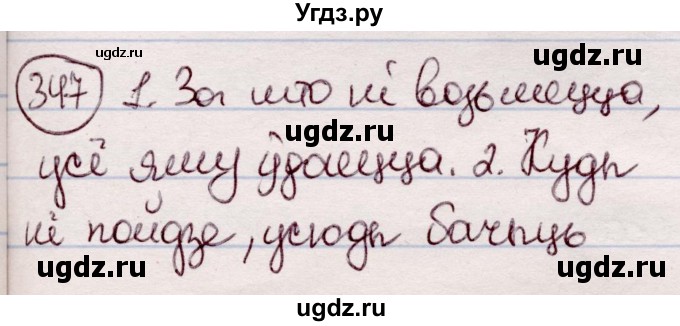 Угдз.ру
ugdz.ru ugdz.ru
347 1. За што ні возьмецца,
ugdz.ru
усё яму ўдаецца. 2. Куды
ugdz.ru ugdz.ru
ні пойдзе, усюды бачыць
ugdz.ru
ugdz.ru ugdz.ru
ugdz.ru